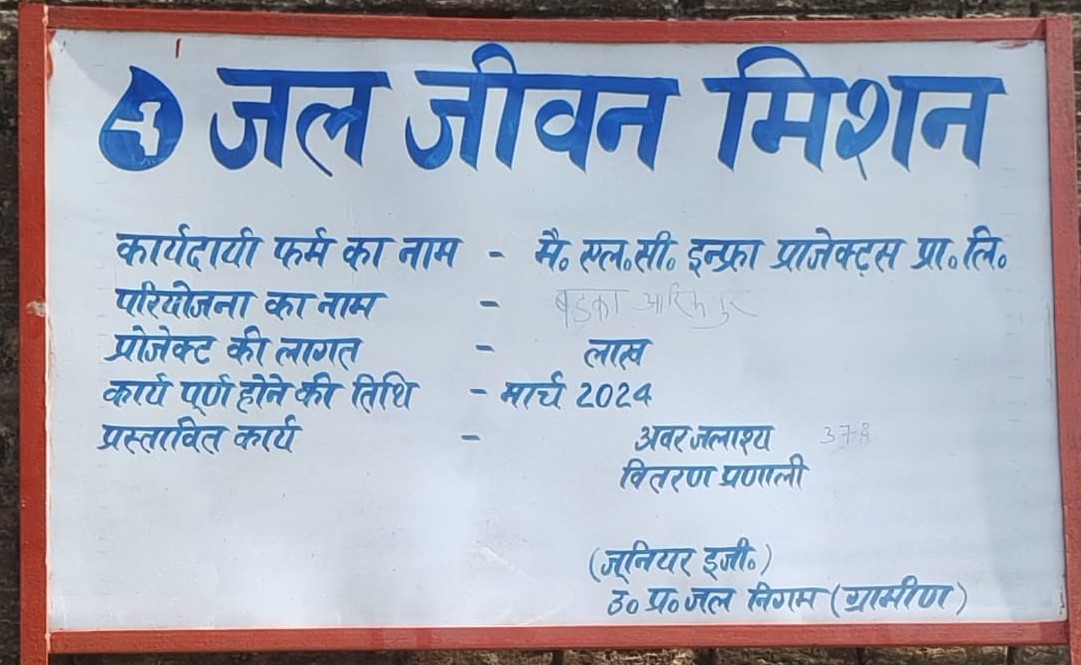 जल जीवन मिशन
कार्यदायी फर्म का नाम - मै॰ एल॰सी॰ इन्फ्रा प्राजेक्ट्स प्रा॰लि॰
परियोजना का नाम - बड़का
प्रोजेक्ट की लागत - लाख
कार्य पूर्ण होने की तिथि - मार्च 2024
प्रस्तावित कार्य - अवर जलाश्य
वितरण प्रणाली
(जूनियर इजी॰)
उ॰ प्र॰ जल निगम (ग्रामीण)